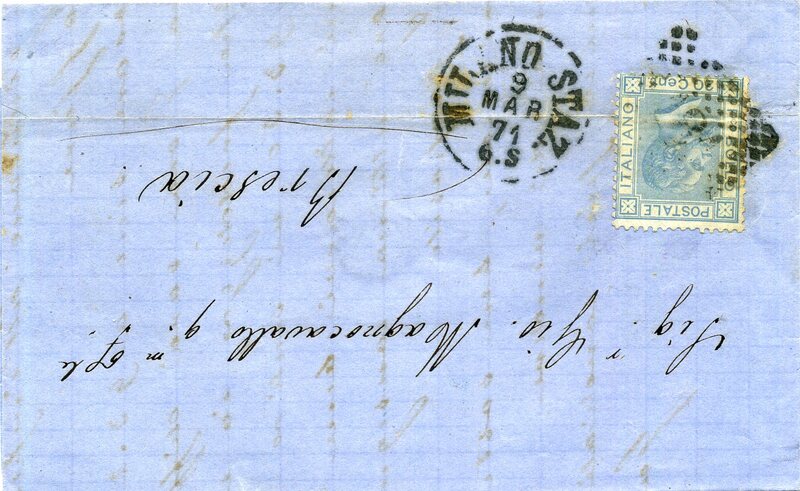 Sig.r Gio. Magnocavallo q.m
Brescia
MILANO STAZ.
9
MAR
71
6.S
POSTALE
ITALIANO
20 Cent